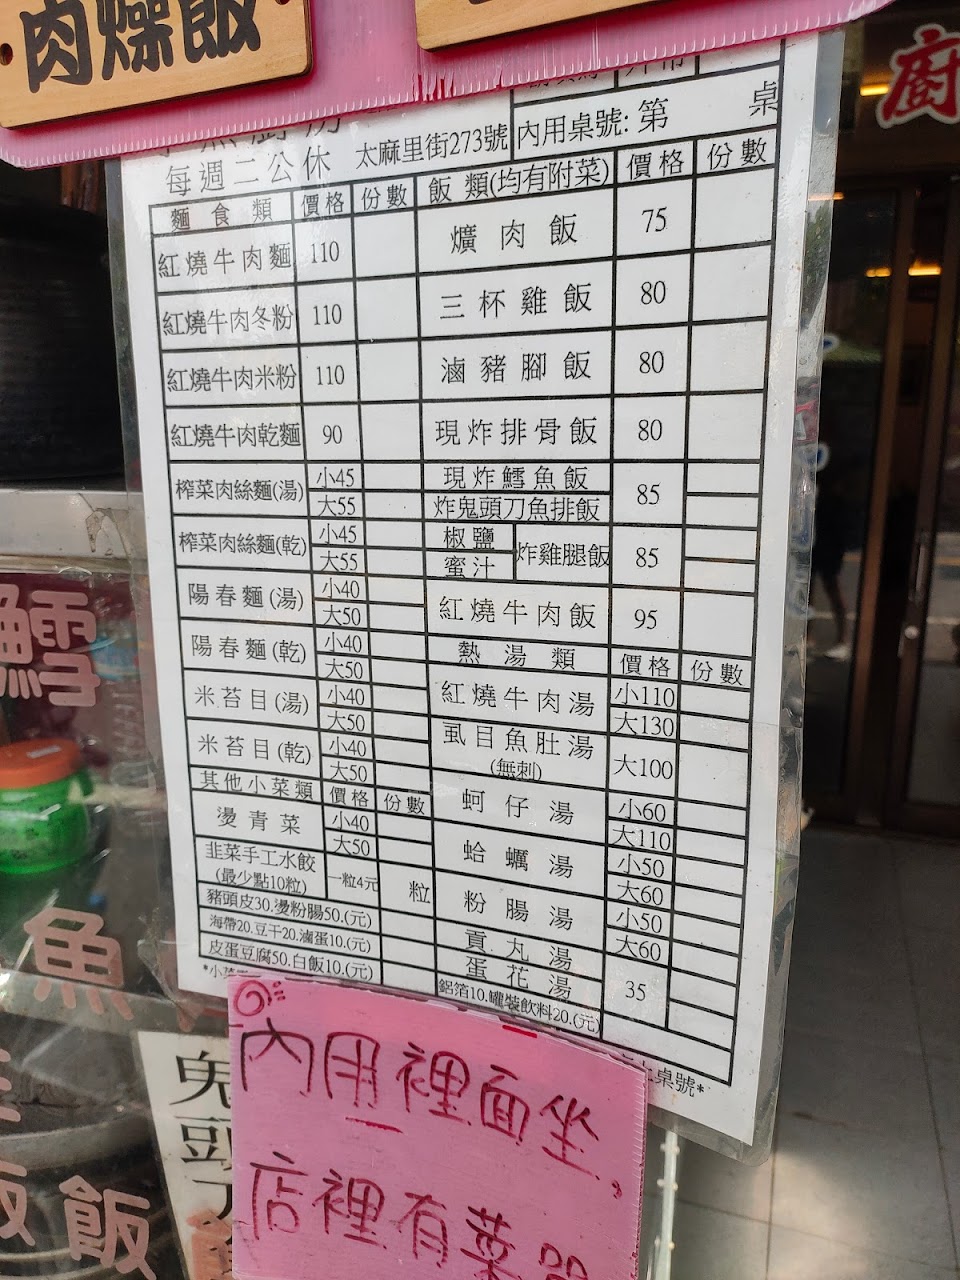 肉燥飯
廚
每週二公休 太麻里街273號 內用桌號: 第 桌
麵食類 價格 份數
紅燒牛肉麵 110
紅燒牛肉冬粉 110
紅燒牛肉米粉 110
紅燒牛肉乾麵 90
榨菜肉絲麵(湯) 小45
大55
榨菜肉絲麵(乾) 小45
大55
陽春麵(湯) 小40
大50
陽春麵(乾) 小40
大50
米苔目(湯) 小40
大50
米苔目(乾) 小40
大50
其他小菜類 價格 份數
燙青菜 小40
大50
韭菜手工水餃
(最少點10粒) 一粒4元 粒
豬頭皮30.燙粉腸50.(元)
海帶20.豆干20.滷蛋10.(元)
皮蛋豆腐50.白飯10.(元)
飯類(均有附菜) 價格 份數
爌肉飯 75
三杯雞飯 80
滷豬腳飯 80
現炸排骨飯 80
現炸鱈魚飯 85
炸鬼頭刀魚排飯
椒鹽 炸雞腿飯 85
蜜汁
紅燒牛肉飯 95
熱湯類 價格 份數
紅燒牛肉湯 小110
大130
虱目魚肚湯 大100
(無刺)
蚵仔湯 小60
大110
蛤蠣湯 小50
大60
粉腸湯 小50
大60
貢丸湯 35
蛋花湯
鋁箔10.罐裝飲料20.(元)
桌號*
內用裡面坐,
店裡有菜單
鱈
魚
飯
鬼
頭
刀